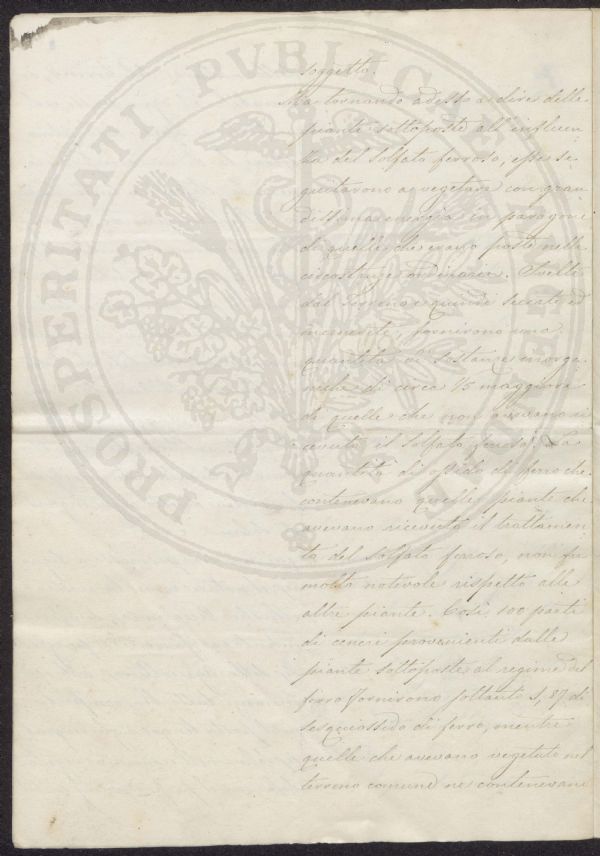 soggetto.
Ma tornando adesso a dire delle
piante sottoposte all'influen-
za del solfato ferroso, esse se-
guitarono a vegetare con gran
dissima energia in paragone
di quelle che erano poste nelle
circostanze ordinarie. Svelte
dal terreno e quindi seccate ed
incenerite, fornirono una
quantità di sostanze inorga-
niche di circa 1/5 maggiore
di quelle che non avevano ri
cevuto il solfato ferroso. La
quantità di ossido di ferro che
contenevano quelle piante che
avevano ricevuto il trattamen
to del solfato ferroso, non fu
molto notevole rispetto alle
altre piante. Così 100 parti
di ceneri provenienti dalle
piante sottoposte al regime del
ferro fornirono soltanto 1,87 di
sesquiossido di ferro, mentre
quelle che avevano vegetato nel
terreno comune ne contenevano
PROSPERITATI PVBLICAE AVGENDAE